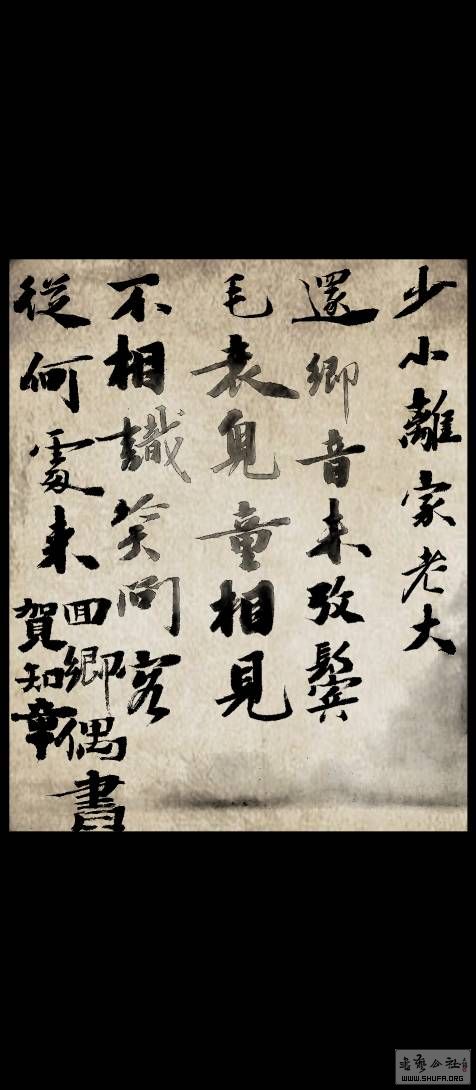 少小離家老大
還鄉音未改鬢
毛衰兒童相見
不相識笑問客
從何處来
回鄉偶書
賀知章
书艺公社
WWW.SHUFA.ORG